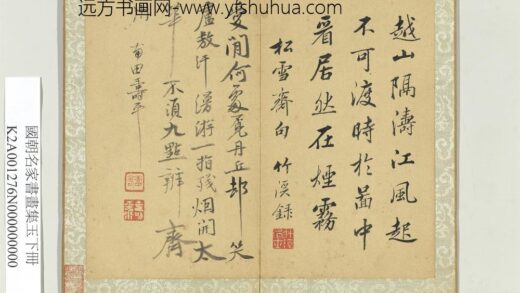 远方书画网-www.yfshuhua.com
越山隔濤江風起
不可渡時於啚中
看居然在煙霧
松雪齋句 竹溪録
愛閒何處覓丹丘却笑
盧敖汗漫游一指殘烟開太
華不須九點辨齊
州
南田壽平
國朝名家書畫集玉下冊
K2A001276N000000000